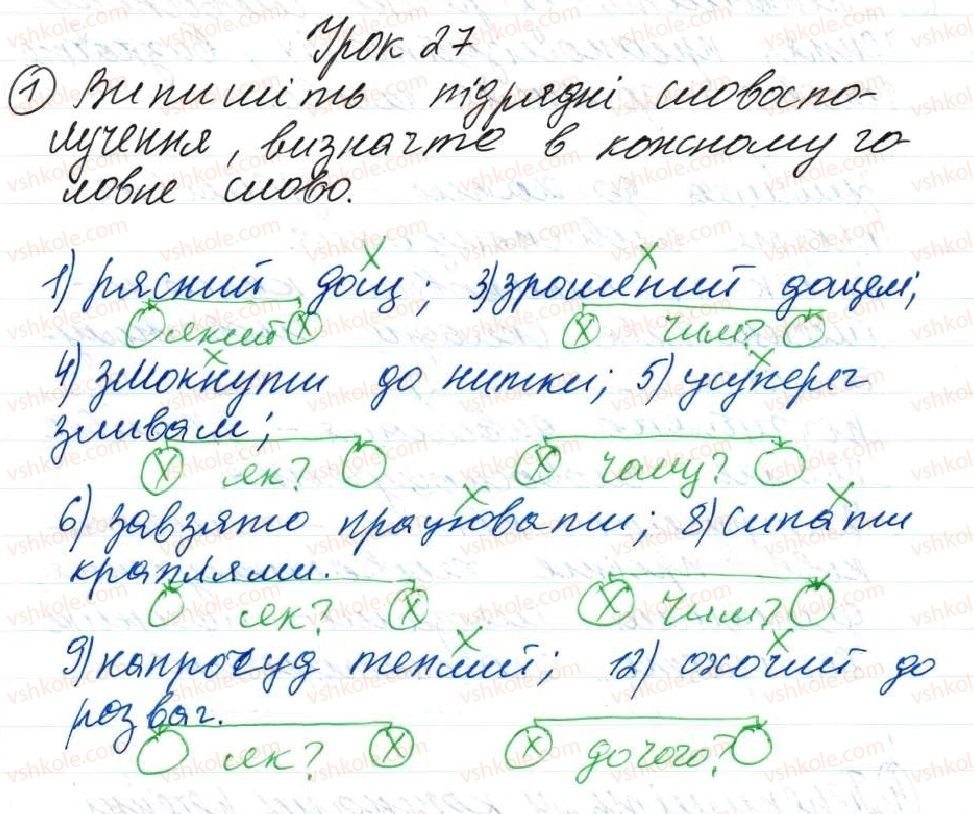 Урок 27
① Випишіть підрядні словоспо-
лучення, визначте в кожному го-
ловне слово.
х х
1) рясний дощ; 3) зрошений дощем;
який х х чим?
х х
4) змокнути до нитки; 5) усупереч
зливам;
х як? х чому?
х х
6) завзято працювати; 8) сипати
краплями.
як? х х чим?
х х
9) напрочуд теплий; 12) охочий до
розваг.
як? х х до чого?